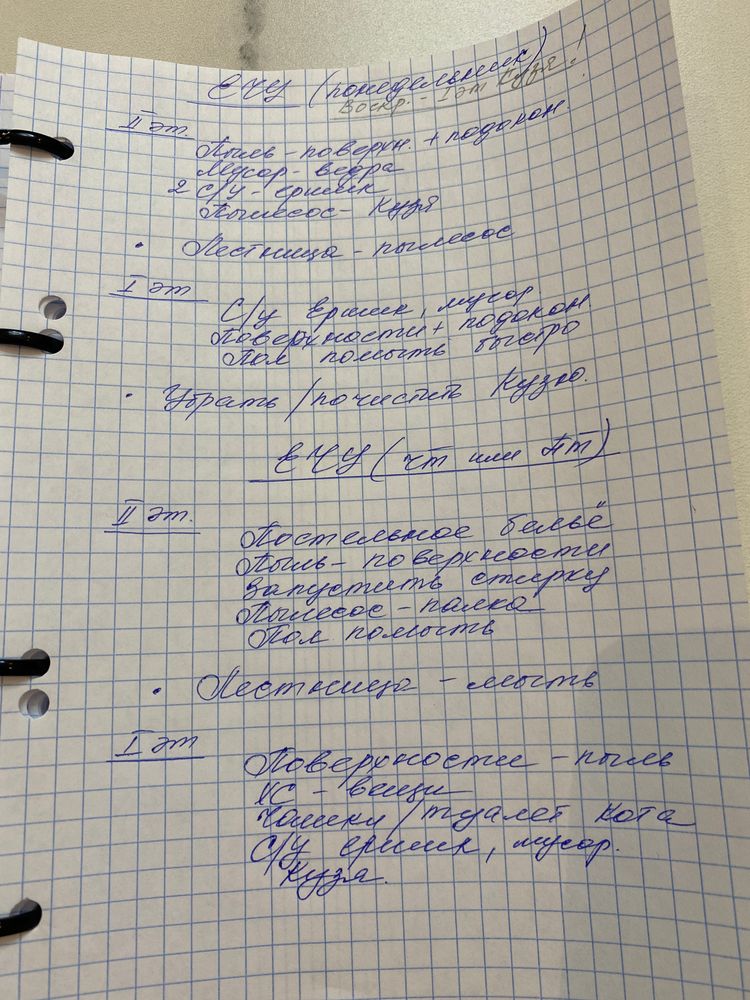 ЕЧУ (понедельник)
Воскр. - I эт Кузя!
II эт.
Пыль - поверхн. + подокон
Мусор - ведра
2 с/у - ершик
Пылесос - Кузя
• Лестница - пылесос
I эт
С/у ершик, мусор
Поверхности + подокон
Пол помыть быстро
• Убрать / почистить Кузю.
ЕЧУ (чт или пт)
II эт.
Постельное бельё
Пыль - поверхности
Запустить стирку
Пылесос - палка
Пол помыть
• Лестница - мыть
I эт
Поверхности - пыль
ХС - вещи
Чашки / туалет кота
С/у ершик, мусор.
Кузя.